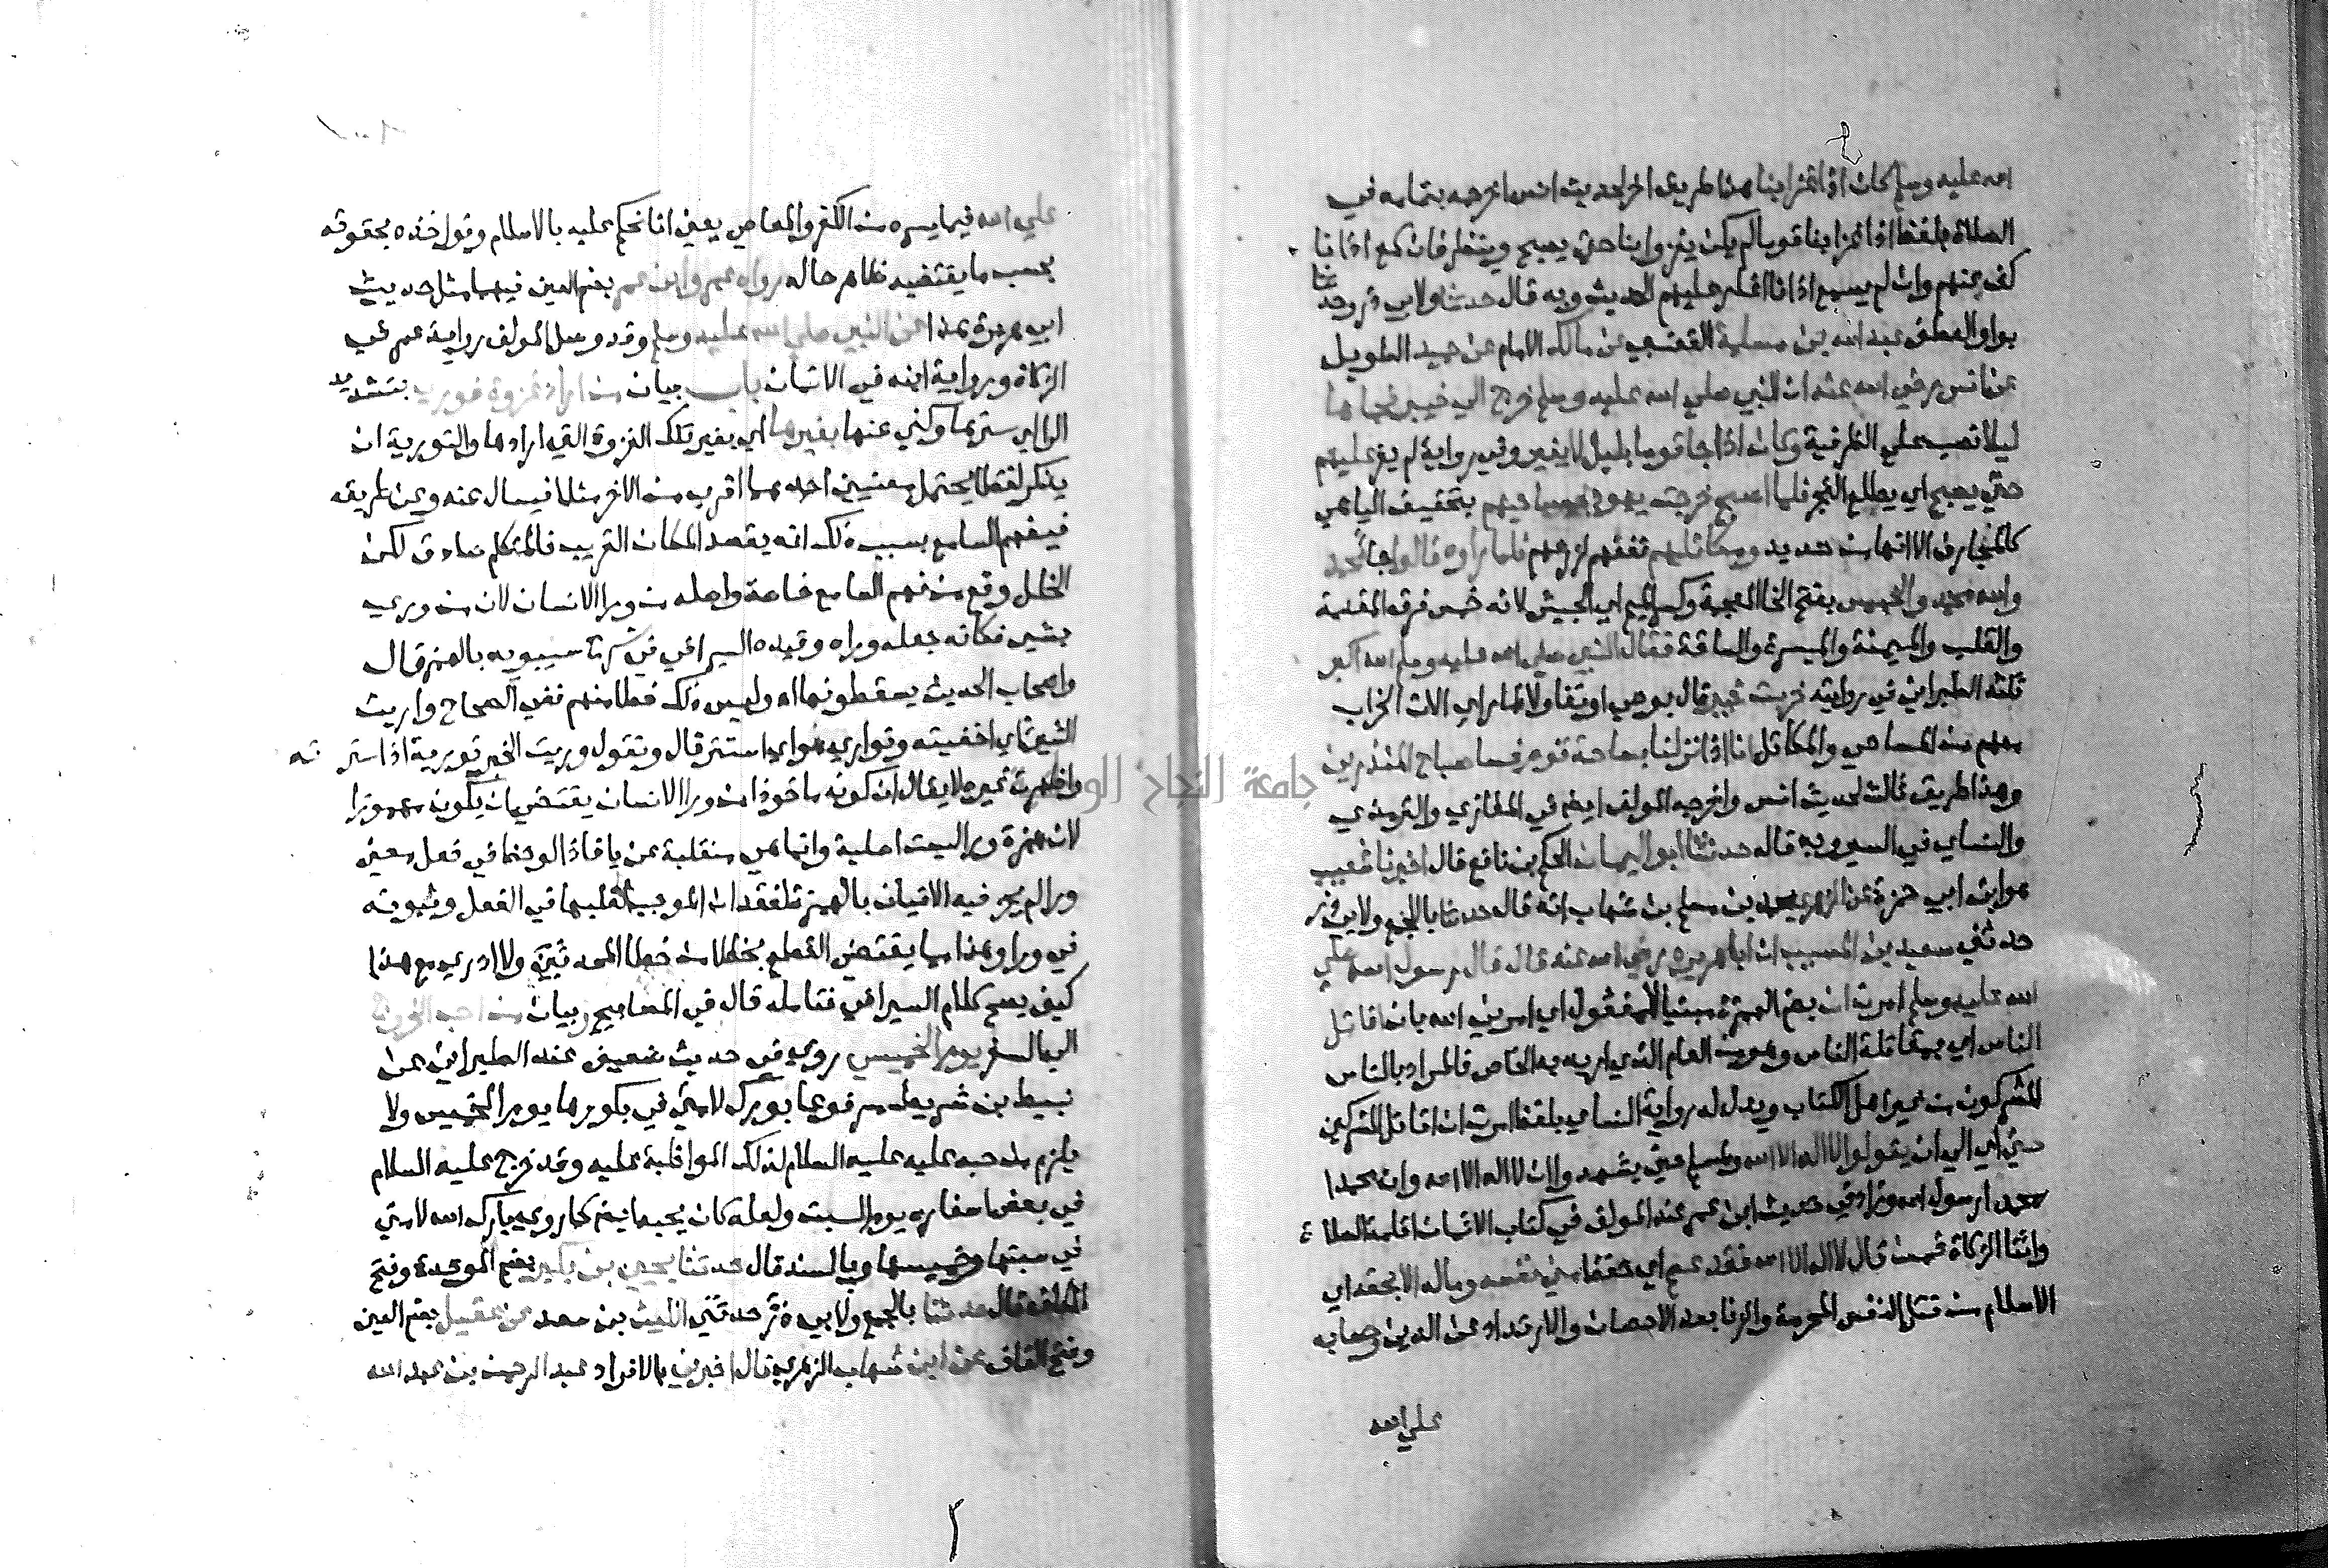 الله عليه وسلم كان اذا غزا بنا هذا طريق اخر لحديث انس اخرجه بتمامه في
الصلاة بلفظ اذا غزا بنا قوما لم يكن يغزو بنا حتى يصبح وينظر فان سمع اذانا
كف عنهم وان لم يسمع اذانا اغار عليهم الحديث وبه قال حدثنا ولابي ذر وحدثنا
بواو العطف عبد الله بن مسلمة القعنبي عن مالك الامام عن حميد الطويل
عن انس رضي الله عنه ان النبي صلى الله عليه وسلم خرج الي خيبر فجاها
ليلا نصب على الظرفية وكان اذا جا قوما بليل لا يغير وفي رواية لم يغر عليهم
حتى يصبح اي يطلع الفجر فلما اصبح خرجت يهود بمساحيهم بتخفيف اليا هي
كالمجارف الا انها من حديد ومكاتلهم قففهم لزرعهم فلما راوه قالوا جا محمد
والله محمد والخميس بفتح الخا المعجمة وكسر الميم اي الجيش لانه خمس فرق المقدمة
والقلب والميمنة والميسرة والساقة فقال النبي صلى الله عليه وسلم الله اكبر
ثلثه الطبراني في روايته خربت خيبر قال بوحي او تفاولا لما راي الات الخراب
معهم من المساحي والمكاتل انا اذا نزلنا بساحة قوم فسا صباح المنذرين
وهذا طريق ثالث لحديث انس واخرجه المولف ايضا في المغازي والترمذي
والنساي في السير وبه قال حدثنا ابو اليمان الحكم بن نافع قال اخبرنا شعيب
هو ابن ابي حمزة عن الزهري محمد بن مسلم بن شهاب انه قال حدثنا بالجمع ولابي ذر
حدثني سعيد بن المسيب ان ابا هريرة رضي الله عنه قال قال رسول الله صلي
الله عليه وسلم امرت ان بضم الهمزة مبنيا للمفعول اي امرني الله بان اقاتل
الناس اي بمقاتلة الناس وهو من العام الذي اريد به الخاص فالمراد بالناس
المشركون من غير اهل الكتاب ويدل له رواية النساي بلفظ امرت ان اقاتل المشركين
حتى اي الي ان يقولوا لا اله الا الله ولمسلم حتى يشهدوا ان لا اله الا الله وان محمدا
محمد ارسول الله وزاد في حديث ابن عمر عند المولف في كتاب الايمان اقامة الصلاة
وايتا الزكاة فمن قال لا اله الا الله فقد عصم اي حفظ مني نفسه وماله الا بحقه اي
الاسلام من قتل النفس المحرمة والزنا بعد الاحصان والارتداد عن الدين وحسابه
علي الله
علي الله فيما يسره من الكفر والمعاصي يعني انا نحكم عليه بالاسلام ونواخذه بحقوقه
بحسب ما يقتضيه ظاهر حاله رواه عمر وابن عمر بضم العين فيهما مثل حديث
ابي هريرة هذا عن النبي صلي الله عليه وسلم وقد وصل المولف رواية عمر في
الزكاة ورواية ابنه في الايمان باب بيان من اراد غزوة فوري بتشديد
الرا اي سترها وكني عنها بغيرها اي بغير تلك الغزوة التي ارادها والتورية ان
يذكر لفظا يحتمل معنيين احدهما اقرب من الاخر مثلا فيسال عنه وعن طريقه
فيفهم السامع بسبب ذلك انه يقصد المكان القريب فالمتكلم صادق لكن
الخلل وقع من فهم السامع خاصة واصله من ورا الانسان لان من وري
بشي فكانه جعله وراه وقيده السيرافي في شرح سيبويه بالهمز قال
واصحاب الحديث يسقطونها اه وليس ذلك خطا منهم ففي الصحاح واريت
الشي اي اخفيته وتواري هو اي استتر قال وتقول وريت الخبر تورية اذا سترته
واظهرت غيره لا يقال ان كونه ماخوذا من ورا الانسان يقتضي ان يكون مهموزا
لان همزة ورا ليست اصلية وانما هي منقلبة عن يا فاذا لوحظ في فعل معني
ورا لم يجز فيه الاتيان بالهمزة لفقدان الموجب لقلبها في الفعل وثبوته
في ورا وهذا مما يقتضي القطع بخطا من خطا المحدثين ولا ادري مع هذا
كيف يصح كلام السيرافي فتامله قال في المصابيح وبيان من احب الخروج
الي السفر يوم الخميس روي في حديث ضعيف عند الطبراني عن
نبيط بن شريط مرفوعا بورك لامتي في بكورها يوم الخميس ولا
يلزم من حبه عليه عليه السلام لذلك المواظبة عليه وقد خرج عليه السلام
في بعض اسفاره يوم السبت ولعله كان يحبه ايضا كما روي بارك الله لامتي
في سبتها وخميسها وبالسند قال حدثنا يحيي بن بكير بضم الموحدة وفتح
الكاف قال حدثنا بالجمع ولابي ذر حدثني الليث بن سعد عن عقيل بضم العين
وفتح القاف عن ابن شهاب الزهري قال اخبرني بالافراد عبد الرحمن بن عبد الله